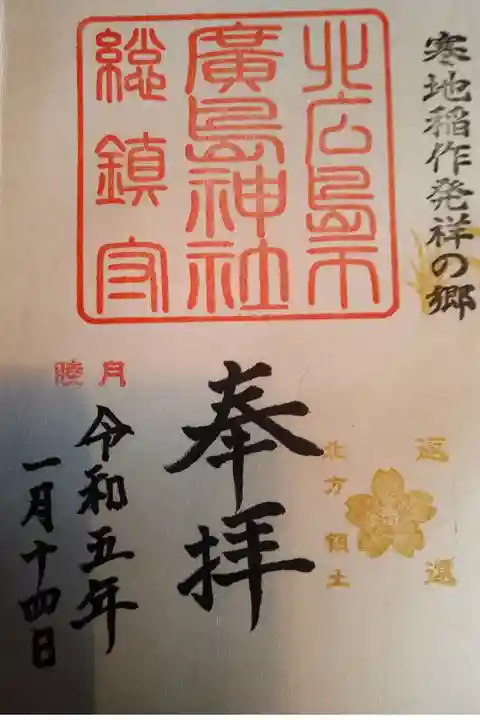 寒地稲作発祥の郷
北広島市
廣島神社
総鎮守
奉拝
返還
北方領土
睦月
令和五年
一月十四日